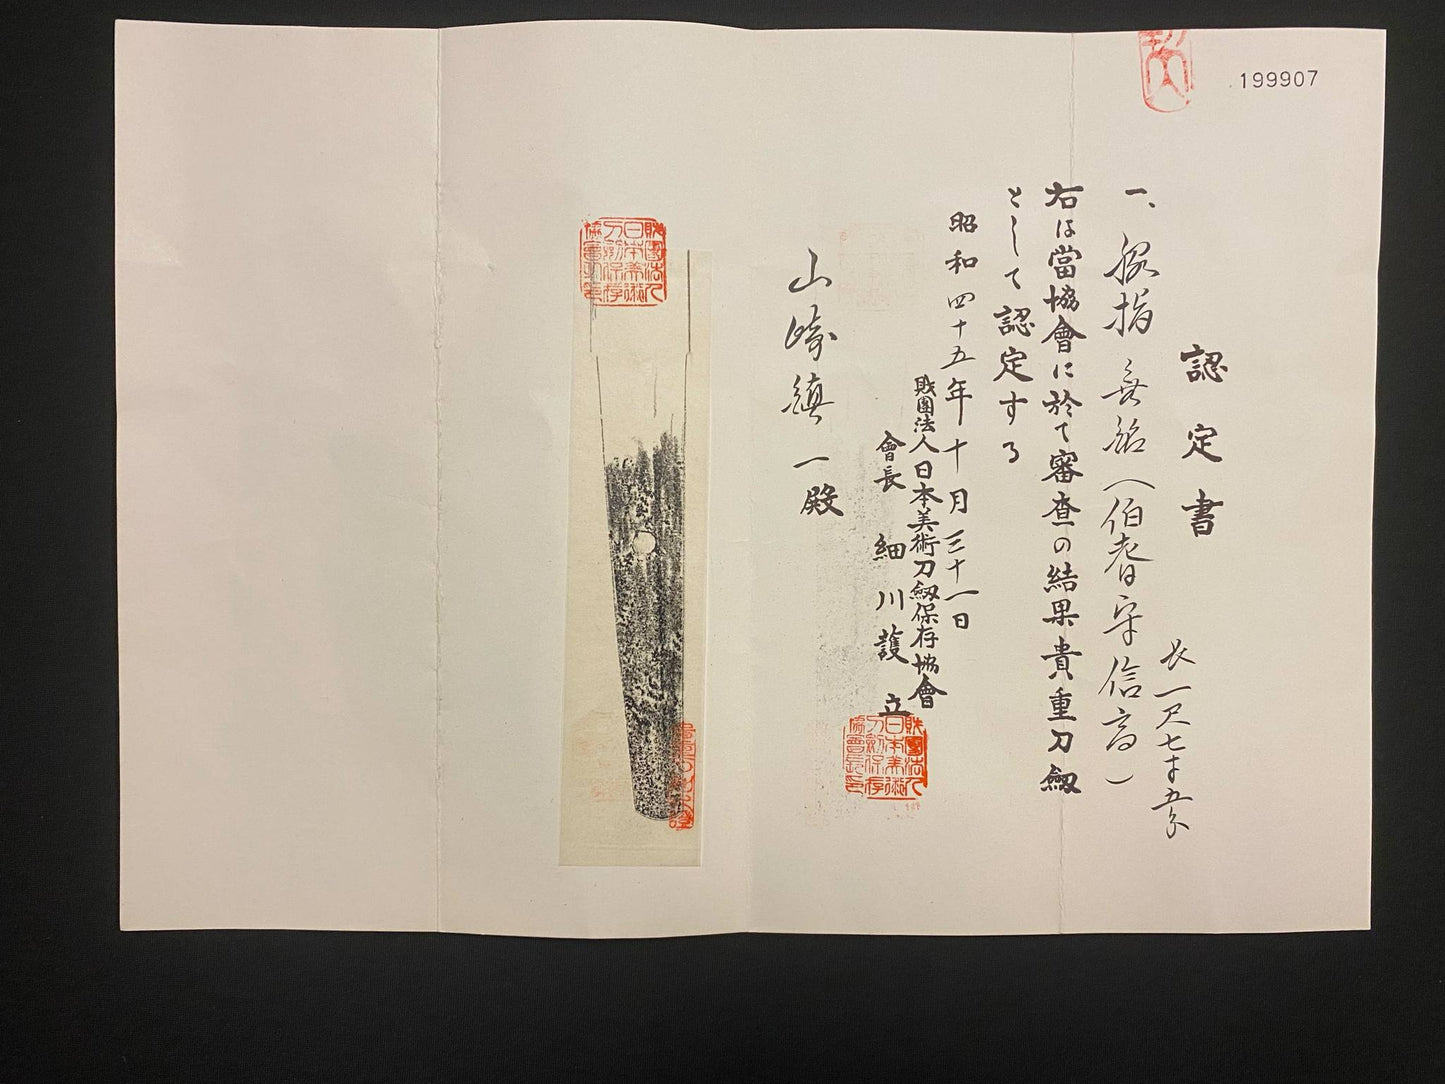 199907
認定書
一、脇指 無銘(伯耆守信高)
長一尺七寸五分
右は當協會に於て審査の結果貴重刀劔
として認定する
昭和四十五年十月三十一日
財團法人日本美術刀劔保存協會
會長 細川護立
山崎鎮一殿
財團法人日本美術刀劔保存協會長印
財團法人日本美術刀劔保存協會長印